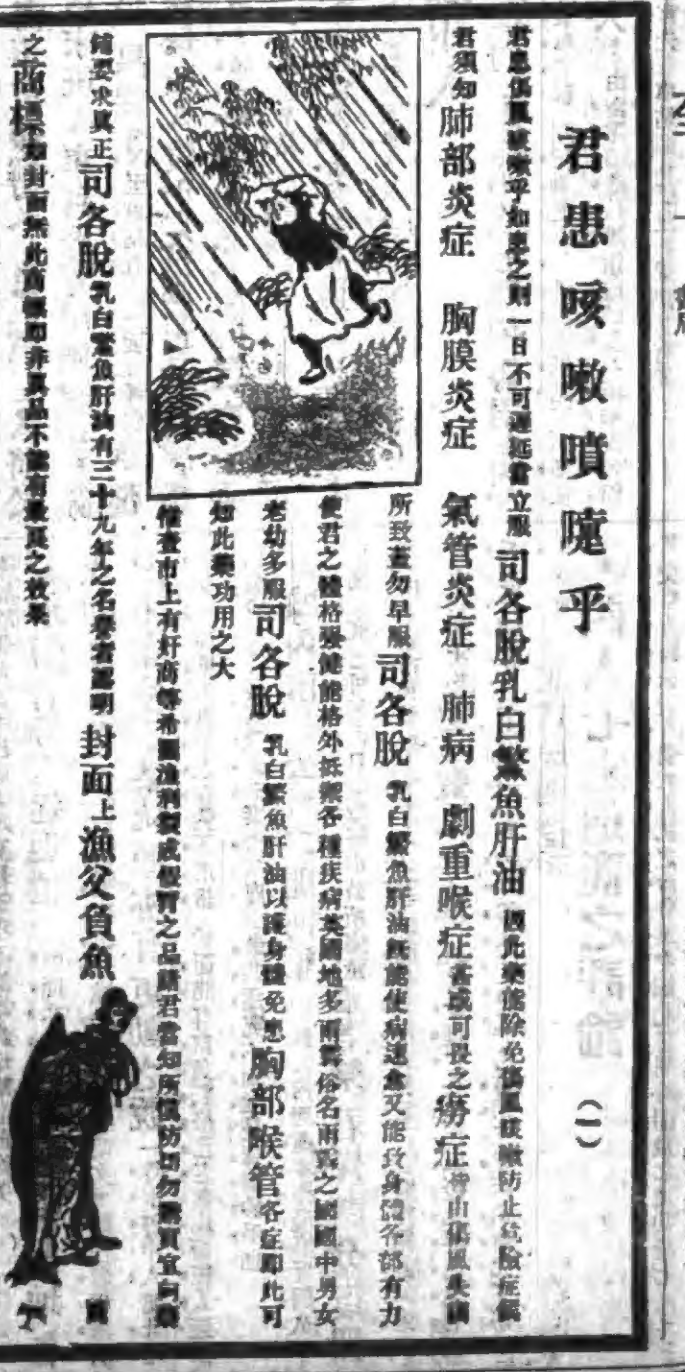 君患咳嗽噴嚏乎
(一)
君患傷風咳嗽乎如患之則一日不可遲延當立服司各脫乳白鰵魚肝油因此藥能除免傷風咳嗽防止危險症候
君須知肺部炎症 胸膜炎症 氣管炎症 肺病 劇重喉症甚或可畏之癆症皆由傷風失調
所致蓋勿早服司各脫乳白鰵魚肝油既能使病速愈又能致身體各部有力
使君之體格強健能格外抵禦各種疾病英國地多雨霧俗名雨霧之國國中男女
老幼多服司各脫乳白鰵魚肝油以護身體免患胸部喉管各症即此可
知此藥功用之大
惟查市上有奸商等希圖漁利製成假冒之品諸君當知所慎防切勿購買宜向藥
鋪要求真正司各脫乳白鰵魚肝油有三十九年之名譽者認明封面上漁父負魚
之商標如封面無此商標即非真品不能有最良之效果